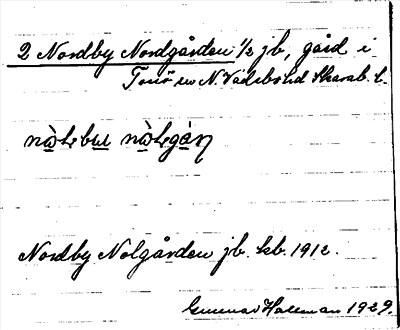 2 Nordby Nordgården 1/2 jb, gård i
Torsö sn N. Vadsbo hd Skarab. l.
Nordby Nolgården jb. kb. 1912.
Gunnar Hallman 1929.